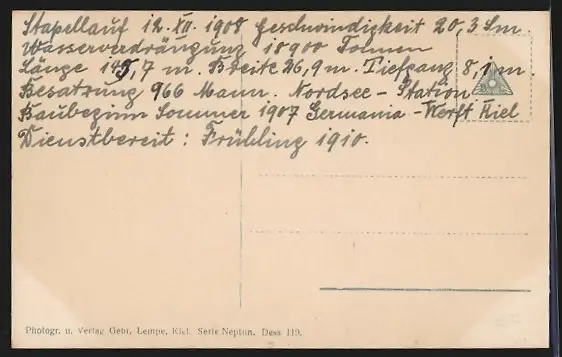 Stapellauf 12. XII. 1908 Geschwindigkeit 20,3 Sm.
Wasserverdrängung 18900 Tonnen
Länge 145,7 m. Breite 26,9 m. Tiefgang 8,1 m.
Besatzung 966 Mann. Nordsee - Station
Baubeginn Sommer 1907 Germania - Werft Kiel
Dienstbereit: Frühling 1910.
Photogr. u. Verlag Gebr. Lempe, Kiel. Serie Neptun. Dess 119.